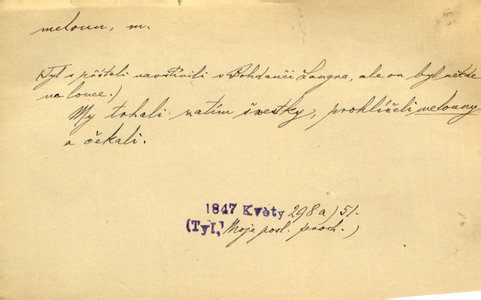 meloun, m.
(Tyl s přáteli navštívili v Bohdanči Langra, ale on byl někde
na louce.)
My trhali zatím švestky, prohlíželi melouny
a čekali.
1847 Květy 298a) 51.
(Tyl, Moje posl. proch.)